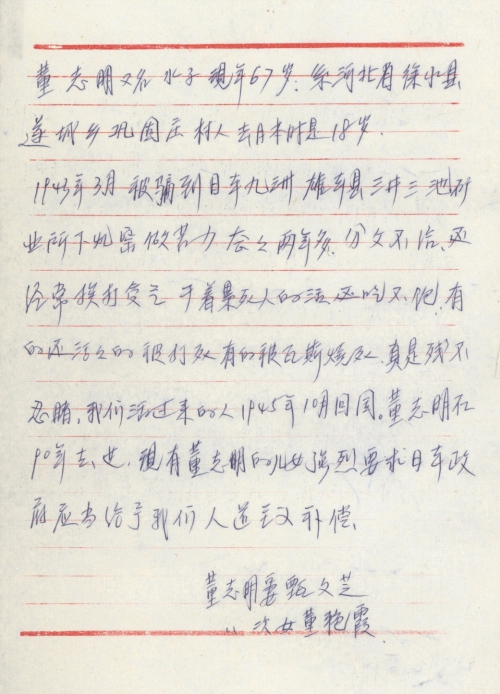 董志明又名水子现年67岁.系河北省徐水县
遂城乡巩固庄村人去日本时是18岁.
1943年3月被骗到日本九洲雄本县三井三池矿
业所下坑窑做苦力左右两年多.分文不给.还
经常挨打受气干着累死人的活还吃不饱.有
的还活活的被打死有的被瓦斯烧死.真是残不
忍睹,我们活过来的人1945年10月回国。董志明在
90年去世.现有董志明的儿女强烈要求日本政
府应当给予我们人道主义补偿.
董志明妻甄文芝
〃次女董艳霞